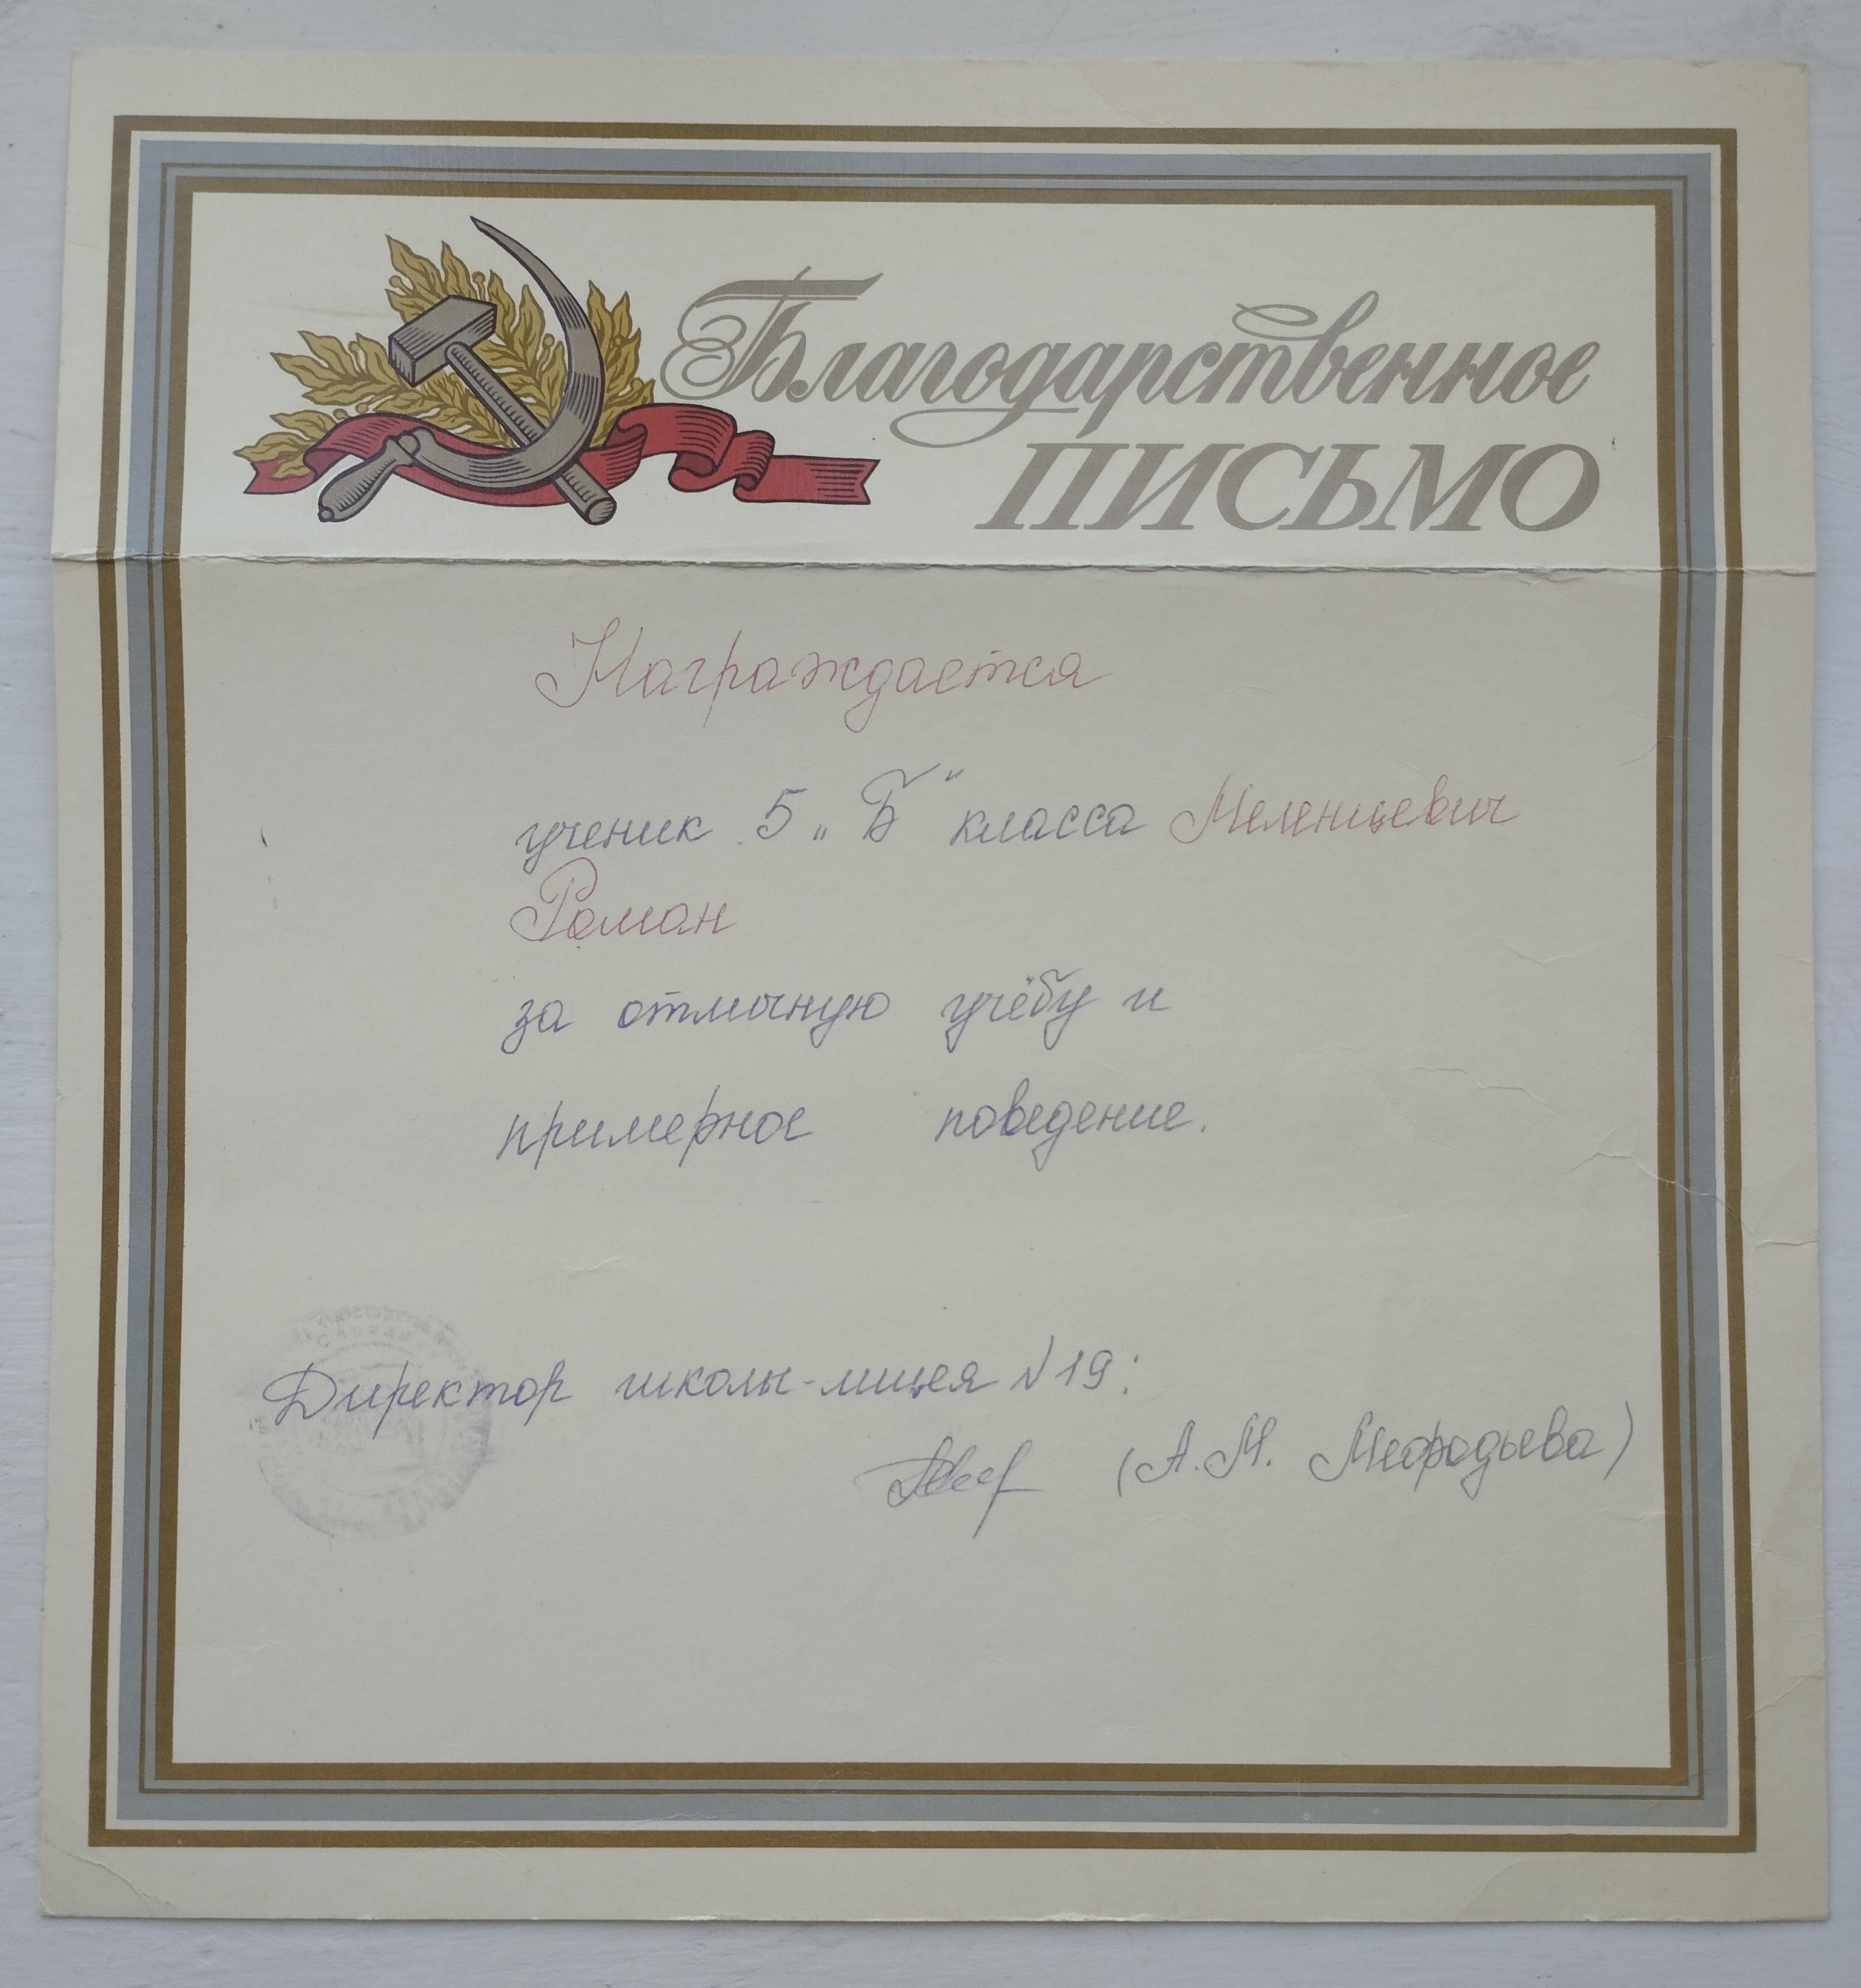 Благодарственное
ПИСЬМО
Награждается
ученик 5 „Б" класса Меленцевич
Роман
за отличную учёбу и
примерное поведение.
Директор школы-лицея N19:
(А.М. Мефодьева)